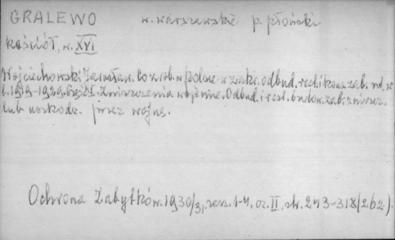 GRALEWO w. warszawskie p. płoński
kościół, w. XVI
Wojciechowski Jarosław. Co zrob. w Polsce w zakr. odbud. rest. i kons. zab. rd. w
l. 1919-1929. Część I. Zniszczenia wojenne. Odbud. i rest. budow. zab. zniszcz.
lub uszkodz. przez wojnę.
Ochrona Zabytków. 1930/31, zesz. 1-4, cz. II, str. 243-318 (262).